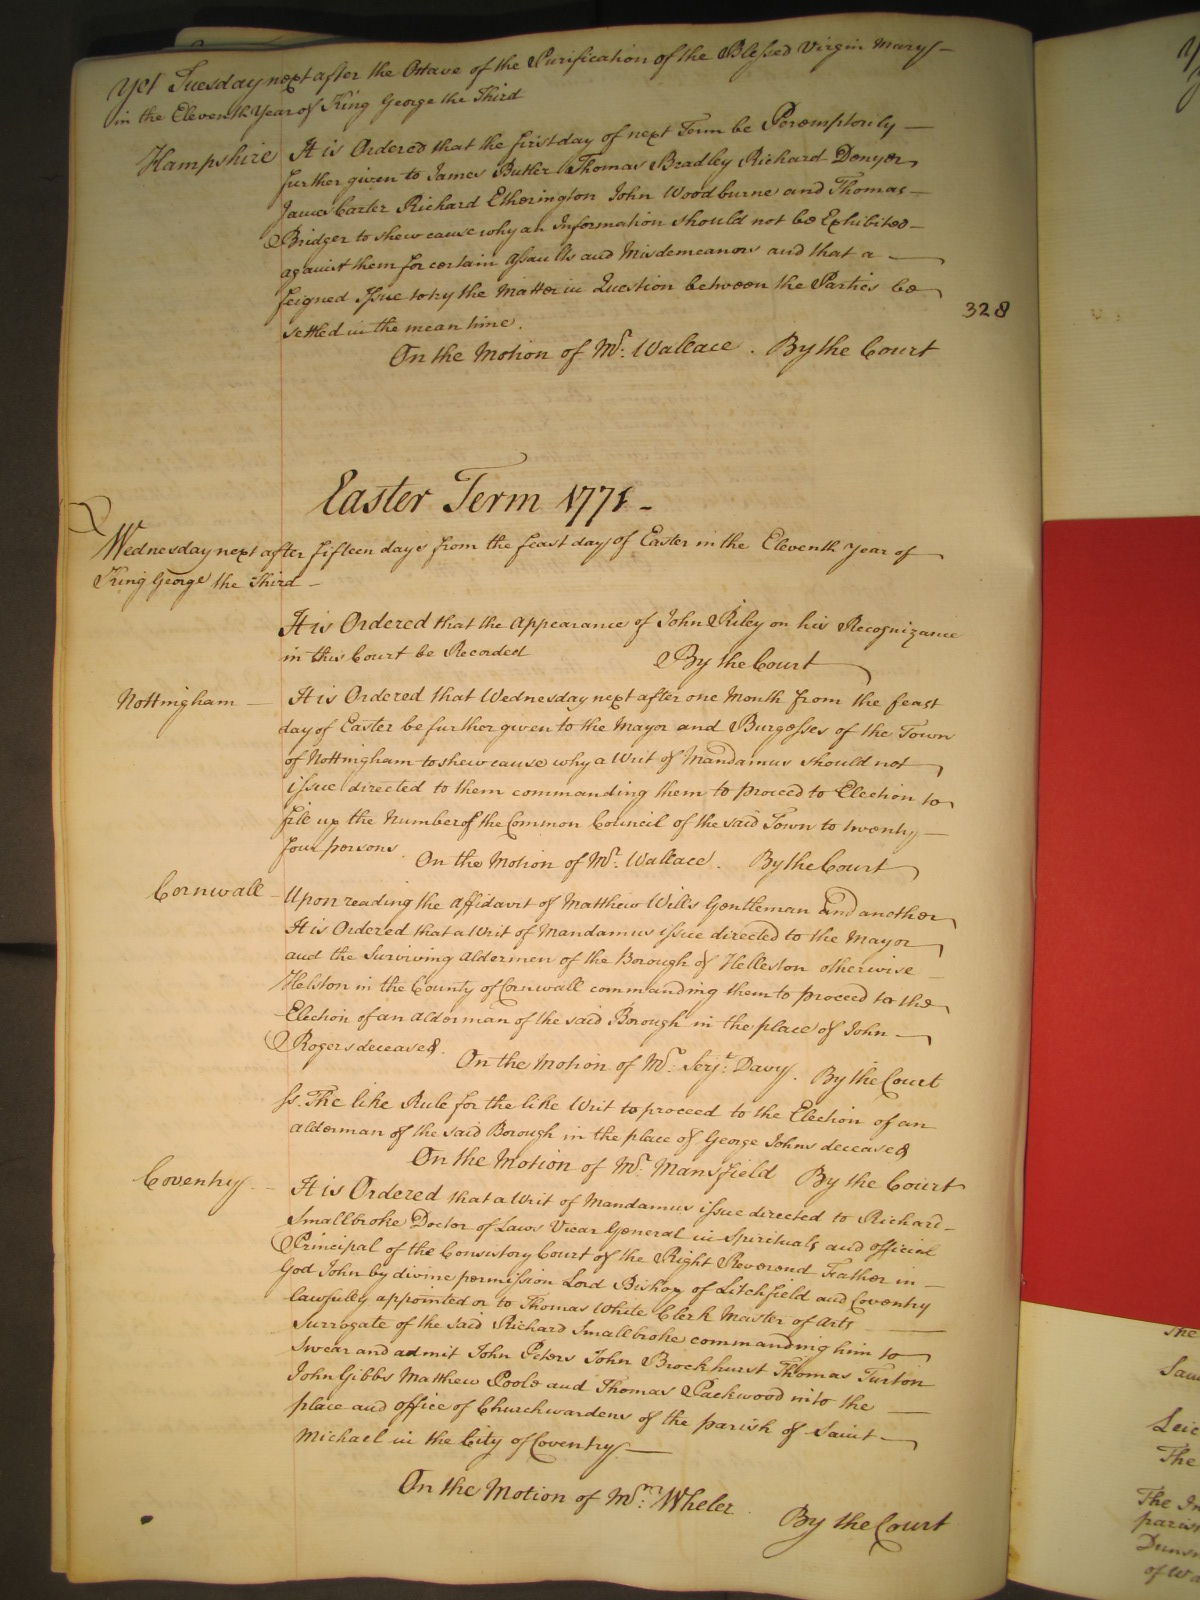 Yet Tuesday next after the Octave of the Purification of the Blessed Virgin Mary
in the Eleventh Year of King George the Third
Hampshire It is Ordered that the first day of next Term be Peremptorily
further given to James Butler Thomas Bradley Richard Denyer
James Carter Richard Etherington John Woodburne and Thomas
Bridger to shew cause why an Information should not be Exhibited
against them for certain Assaults and Misdemeanors and that a
feigned Issue to try the Matter in Question between the Parties be
settled in the mean time.
328
On the Motion of Mr. Wallace. By the Court
Easter Term 1771
Wednesday next after fifteen days from the feast day of Easter in the Eleventh Year of
King George the Third
It is Ordered that the Appearance of John Riley on his Recognizance
in this Court be Recorded By the Court
Nottingham It is Ordered that Wednesday next after one Month from the feast
day of Easter be further given to the Mayor and Burgesses of the Town
of Nottingham to shew cause why a Writ of Mandamus should not
issue directed to them commanding them to proceed to Election to
fill up the Number of the Common Council of the said Town to twenty
four persons. On the Motion of Mr. Wallace. By the Court
Cornwall Upon reading the Affidavit of Matthew Wills Gentleman and another
It is Ordered that a Writ of Mandamus issue directed to the Mayor
and the Surviving Aldermen of the Borough of Helleston otherwise
Helston in the County of Cornwall commanding them to proceed to the
Election of an Alderman of the said Borough in the place of John
Rogers deceased. On the Motion of Mr. Serjt. Davy. By the Court
ss. The like Rule for the like Writ to proceed to the Election of an
Alderman of the said Borough in the place of George Johns deceased
On the Motion of Mr. Mansfield By the Court
Coventry It is Ordered that a Writ of Mandamus issue directed to Richard
Smallbroke Doctor of Laws Vicar General in Spirituals and Official
Principal of the Consistory Court of the Right Reverend Father in
God John by divine permission Lord Bishop of Litchfield and Coventry
lawfully appointed or to Thomas White Clerk Master of Arts
Surrogate of the said Richard Smallbroke commanding him to
Swear and admit John Peters John Brockhurst Thomas Turton
John Gibbs Matthew Poole and Thomas Packwood into the
place and office of Churchwardens of the parish of Saint
Michael in the City of Coventry.
On the Motion of Mr. Wheler. By the Court
The
Leic
The
The In
paris
Duns
of Wa